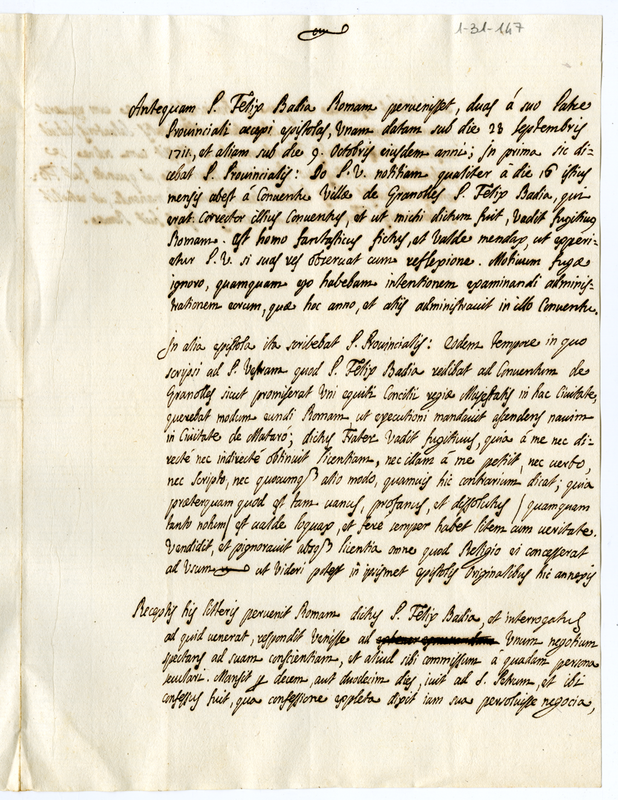 1-31-147
Antequam P. Felix Badia Romam pervenisset, duas á suo Patre
Provinciali accepi epistolas, Vnam datam sub die 23 Septembris
1711, et aliam sub die 9. Octobris eiusdem anni; Jn prima sic di-
cebat P. Provincialis: Do P.V. notitiam qualiter á die 16 istius
mensis abest á Conventu Villæ de Granolles P. Felix Badia, qui
erat Corrector illius Conventus, et ut mihi dictum fuit, Vadit fugitivus
Romam. est homo fantasticus fictus, et Valde mendax, ut experi-
etur P.V. si suas res observat cum reflexione. Motivum fugæ
ignoro, quamquam ego habebam intentionem examinandi adminis-
trationem eorum, quæ hoc anno, et aliis administravit in illo Conventu.
Jn alia epistola ita scribebat P. Provincialis: Eodem tempore in quo
scripsi ad P. Vestram quod P. Felix Badia redibat ad Conventum de
Granolles sicut promiserat Vni equiti Concilii regiæ Majestatis in hac Civitate,
quærebat modum eundi Romam, ut executioni mandavit ascendens navim
in Civitate de Mataró; dictus Frater Vadit fugitivus, quia á me nec di-
recté nec indirecté obtinuit licentiam, nec illam á me petiit, nec verbo,
nec scripto, nec quocumq3 alio modo, quamvis hic contrarium dicat; quia
præterquam quod est tam vanus, profanus, et dissolutus / quamquam
tanto notum / et valde loquax, et fere semper habet litem cum veritate.
Vendidit, et pignoravit absq3 licentia omne quod Religio ei concesserat
ad Vsum ut videri potest in ipsismet epistolis Originalibus hic annexis
Receptis his litteris pervenit Romam dictus P. Felix Badia, et interrogatus
ad quid venerat, respondit venisse ad Vnum negotium
spectans ad suam conscientiam, et aliud sibi commissum á quadam persona
sæculari. Mansit p decem, aut duodecim dies, ivit ad S. Petrum, et ibi
confessus fuit, qua confessione expleta dixit iam sua persolvisse negocia,